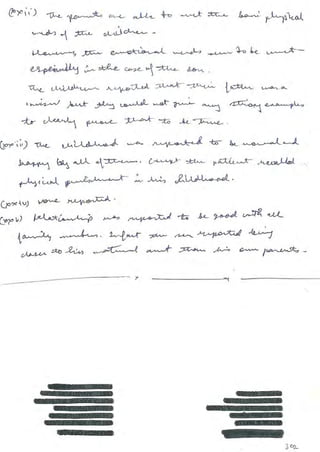 (xxii) The parents are able to meet the basic physical
needs of the children.
However the emotional needs seem to be unmet
especially in the case of the son.
The children reported that their father was a
but they could not give any strong examples
to clearly prove that to be true.
(xxiii) The childhood was reported to be normal and
happy by all of them. Except the patient recalled
physical punishment in his childhood.
(xxiv) None reported.
(xxv) Relationship was reported to be good with all
family members. Infact son reported being
close to his maternal aunt than his own parents.